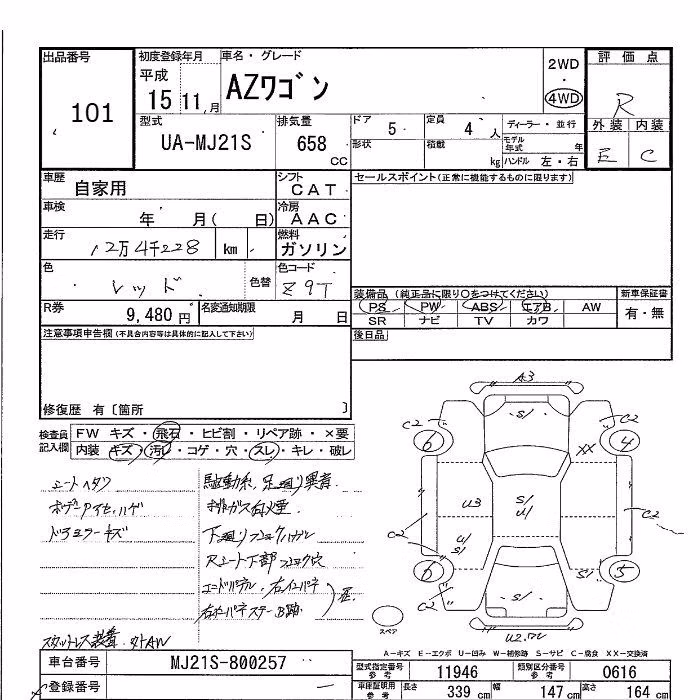 出品番号
101
初度登録年月
平成
15 11 月
車名・グレード
AZワゴン
2WD
・
4WD
評価点
R
型式
UA-MJ21S
排気量
658
CC
ドア
5
定員
4 人
ディーラー・並行
外装 内装
E C
形状
積載
kg
モデル年式 年
ハンドル 左・右
車歴
自家用
シフト
CAT
セールスポイント(正常に機能するものに限ります)
車検
年 月( 日)
冷房
AAC
走行
12万4千228 km
燃料
ガソリン
色
レッド
色替
色コード
Z9T
装備品 (純正品に限り○をつけてください)
新車保証書
PS PW ABS エアB AW
有・無
SR ナビ TV カワ
R券
9,480 円
名変通知期限
月 日
後日品
注意事項申告欄(不具合内容等は具体的に記入して下さい)
修復歴 有〔箇所 〕
検査員記入欄
FW キズ・飛石・ヒビ割・リペア跡・×要
内装 キズ・汚レ・コゲ・穴・スレ・キレ・破レ
シートヘタリ
駆動系、足廻り異音
排ガス白煙
ドアミラーキズ
下廻りコミックハガレ
A3
S1
C2
C2
6
4
XX
U3
S1
U1
C2
C2
U1
S1
6
5
S1
C2
S1
U2.W
スペア
スタットレス装着 外AW
A−キズ E−エクボ U−凹み W−補修跡 S−サビ C−腐食 XX−交換済
車台番号
MJ21S-800257
型式指定番号 参考
11946
類別区分番号 参考
0616
登録番号
−
車庫証明用 参考
長さ 339 cm
幅 147 cm
高さ 164 cm